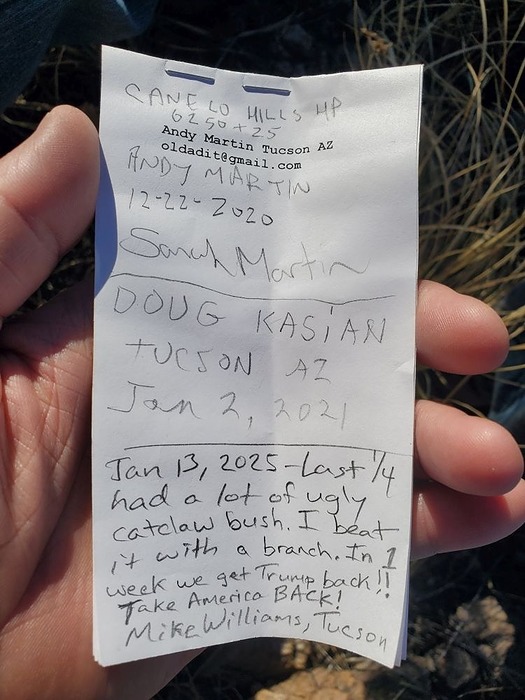 CANELO HILLS HP
6250+25
Andy Martin Tucson AZ
oldadit@gmail.com
ANDY MARTIN
12-22-2020
Sarah Martin
DOUG KASiAN
TUCSON AZ
Jan 2, 2021
Jan 13, 2025-Last 1/4
had a lot of ugly
catclaw bush. I beat
it with a branch. In 1
week we get Trump back!!
Take America BACK!
Mike Williams, Tucson